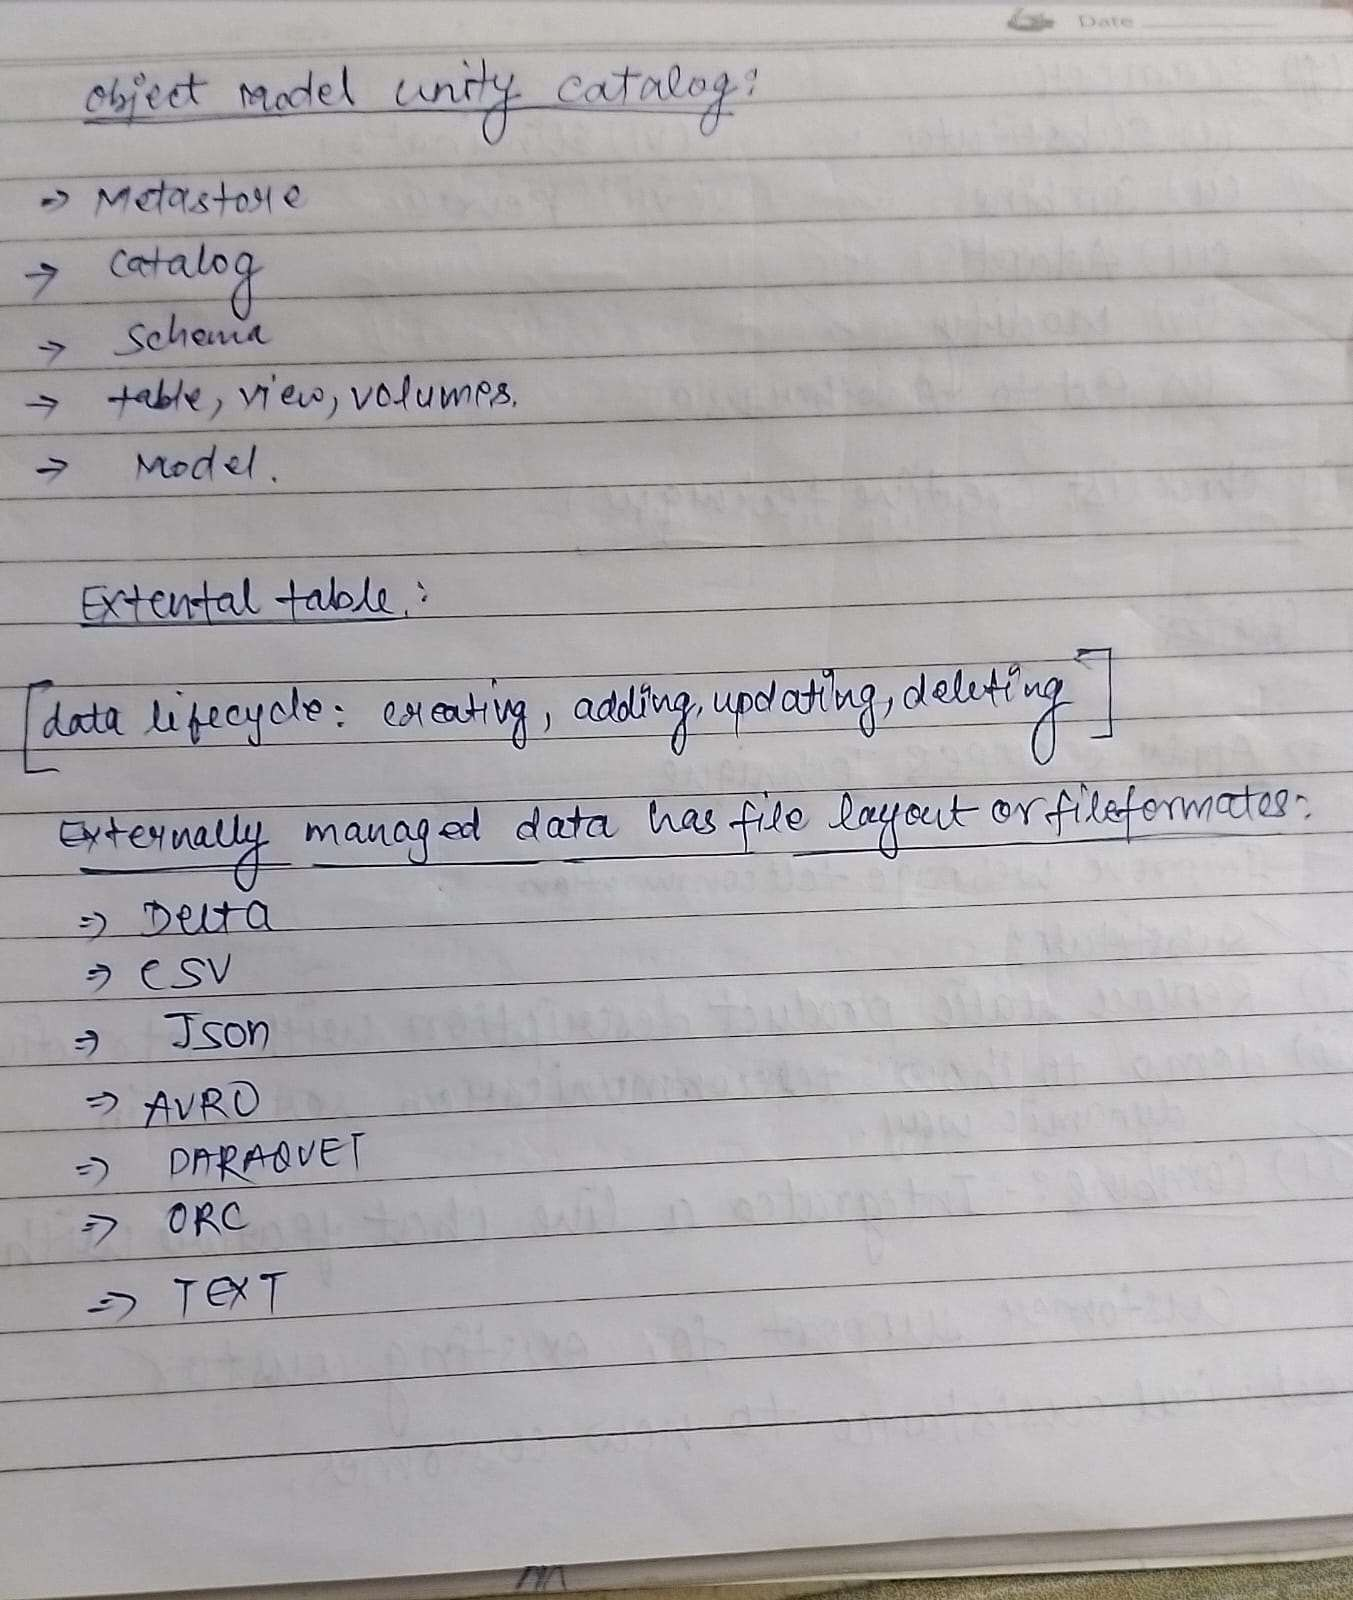 Date
object model unity catalog:
→ Metastore
→ catalog
→ schema
→ table, view, volumes.
→ Model.
Extental table:
[data lifecycle: creating, adding, updating, deleting]
Externally managed data has file layout or fileformates:
⇒ Delta
⇒ CSV
⇒ Json
⇒ AVRO
⇒ PARAQUET
⇒ ORC
⇒ TEXT